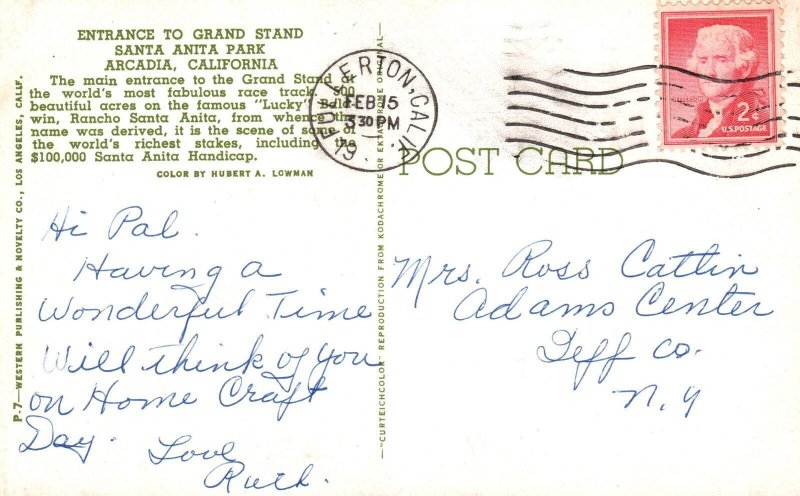 ENTRANCE TO GRAND STAND
SANTA ANITA PARK
ARCADIA, CALIFORNIA
The main entrance to the Grand Stand at
the world's most fabulous race track. 500
beautiful acres on the famous "Lucky" Bald-
win, Rancho Santa Anita, from whence the
name was derived, it is the scene of some of
the world's richest stakes, including the
$100,000 Santa Anita Handicap.
COLOR BY HUBERT A. LOWMAN
P.7—WESTERN PUBLISHING & NOVELTY CO., LOS ANGELES, CALIF.
Hi Pal.
Having a
Wonderful Time
Will think of you
on Home Craft
Day.
Love
Ruth.
—"CURTEICHCOLOR" REPRODUCTION FROM KODACHROME OR EKTACHROME ORIGINAL—
FULLERTON, CALIF.
FEB 15
3 30 PM
19
POST CARD
JEFFERSON
2¢
U.S. POSTAGE
Mrs. Ross Catlin
Adams Center
Jeff Co.
N.Y